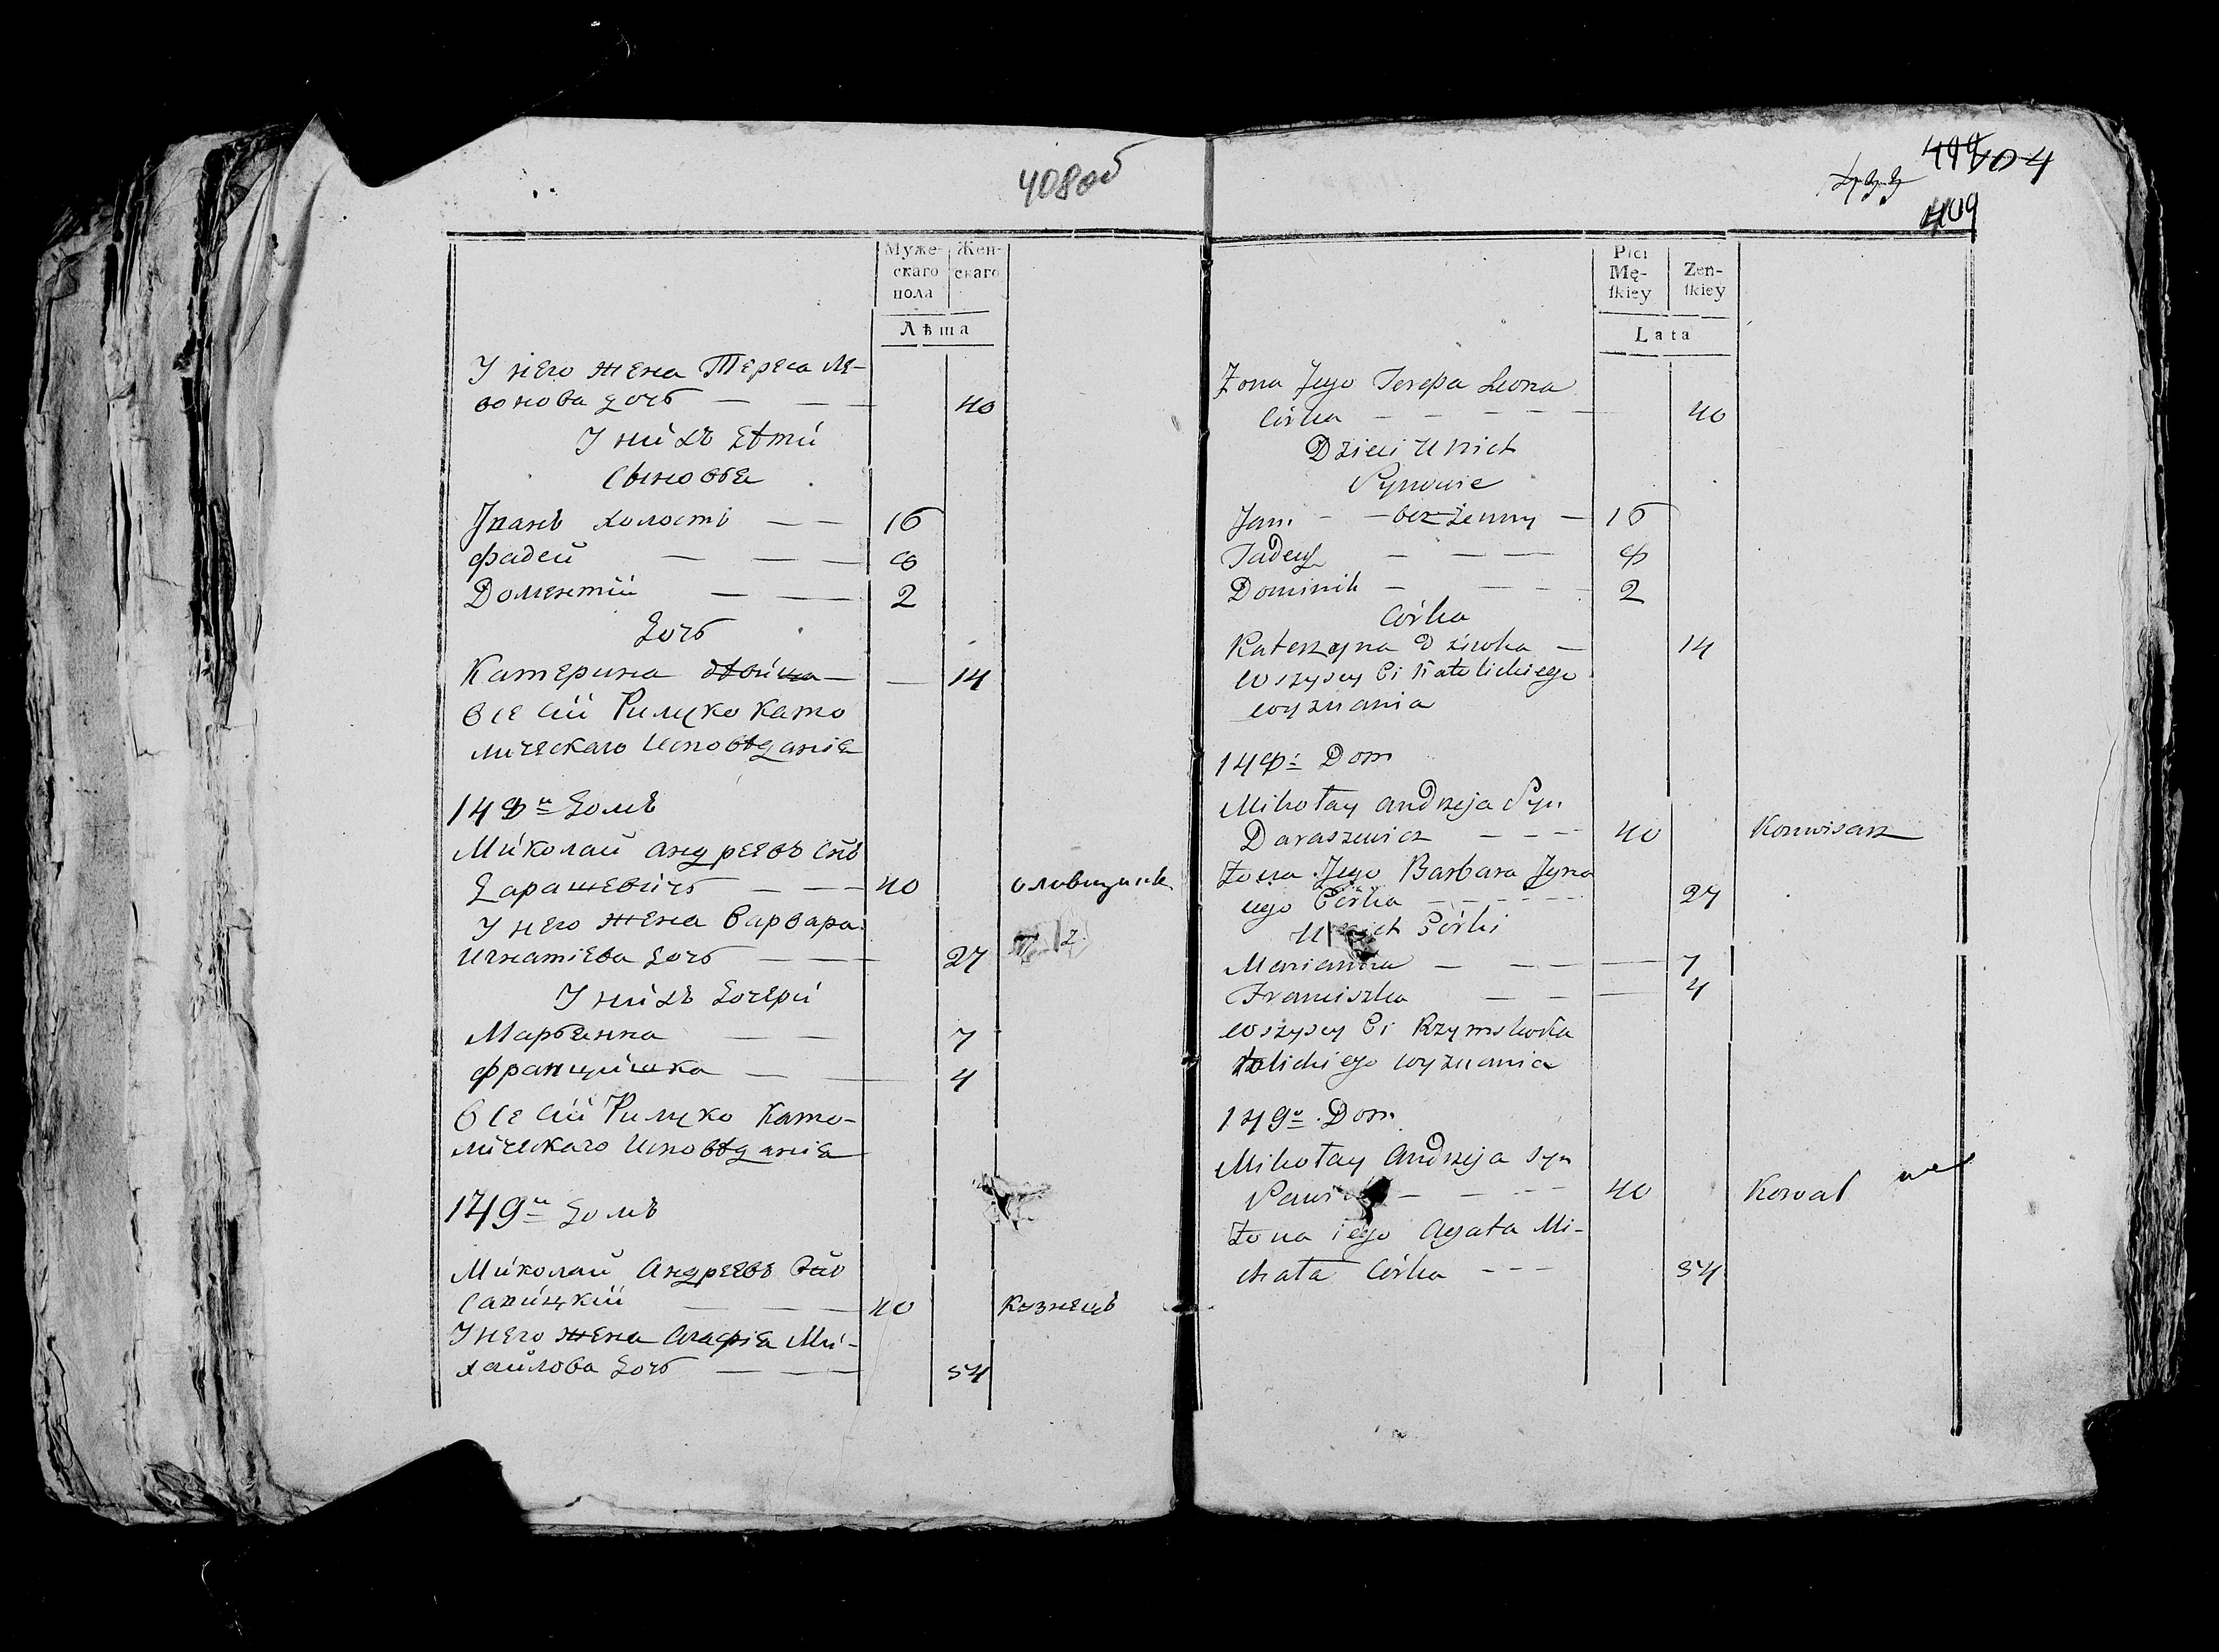 408об
Муже-
скаго
пола
Жен-
скаго
Лѣта
У него жена Тереса Ле-
вонова дочь — — 40
У нихъ дѣти
Сыновья
Иванъ холостъ — — 16
Фадей — — — 8
Доментій — — 2
Дочь
Катерина дѣвица — — 14
Всѣ сіи Римско Като
лическаго Исповѣданія
148й Домъ
Миколай Андреевъ Снъ
Дарашевичъ — — 40
У него жена Варвара
Игнатіева дочь — — 27
У нихъ Дочери
Марьянна — — 7
Францишка — — 4
Всѣ сіи Римско Като-
лическаго Исповѣданія
149й Домъ
Миколай Андреевъ Снъ
Сапицкій — — — 40 Кузнецъ
У него жена Агафія Ми-
хайлова Дочь — — 34
404
409
Płci
Mę-
ſkiey
Zeń-
ſkiey
Lata
Żona Jego Teresa Leona
Córka — — — — 40
Dzieci u nich
Synowie
Jan — — bezżenny — 16
Tadeusz — — — 8
Dominik — — — 2
Córka
Katerzyna Dziewka — 14
wszyscy Ci Katolickiego
wyznania
148y Dom
Mikołay Andrzeja Syn
Daraszewicz — — — 40 Konwisarz
Żona Jego Barbara Jgna
cego Córka — — — 27
U nich Córki
Marianna — — — — 7
Franciszka — — — 4
wszyscy Ci Rzymskoka
tolickiego wyznania
149y Dom
Mikołay Andrzeja Syn
— — — 40 Kowal
Żona iego Agata Mi-
chała Córka — — — 34